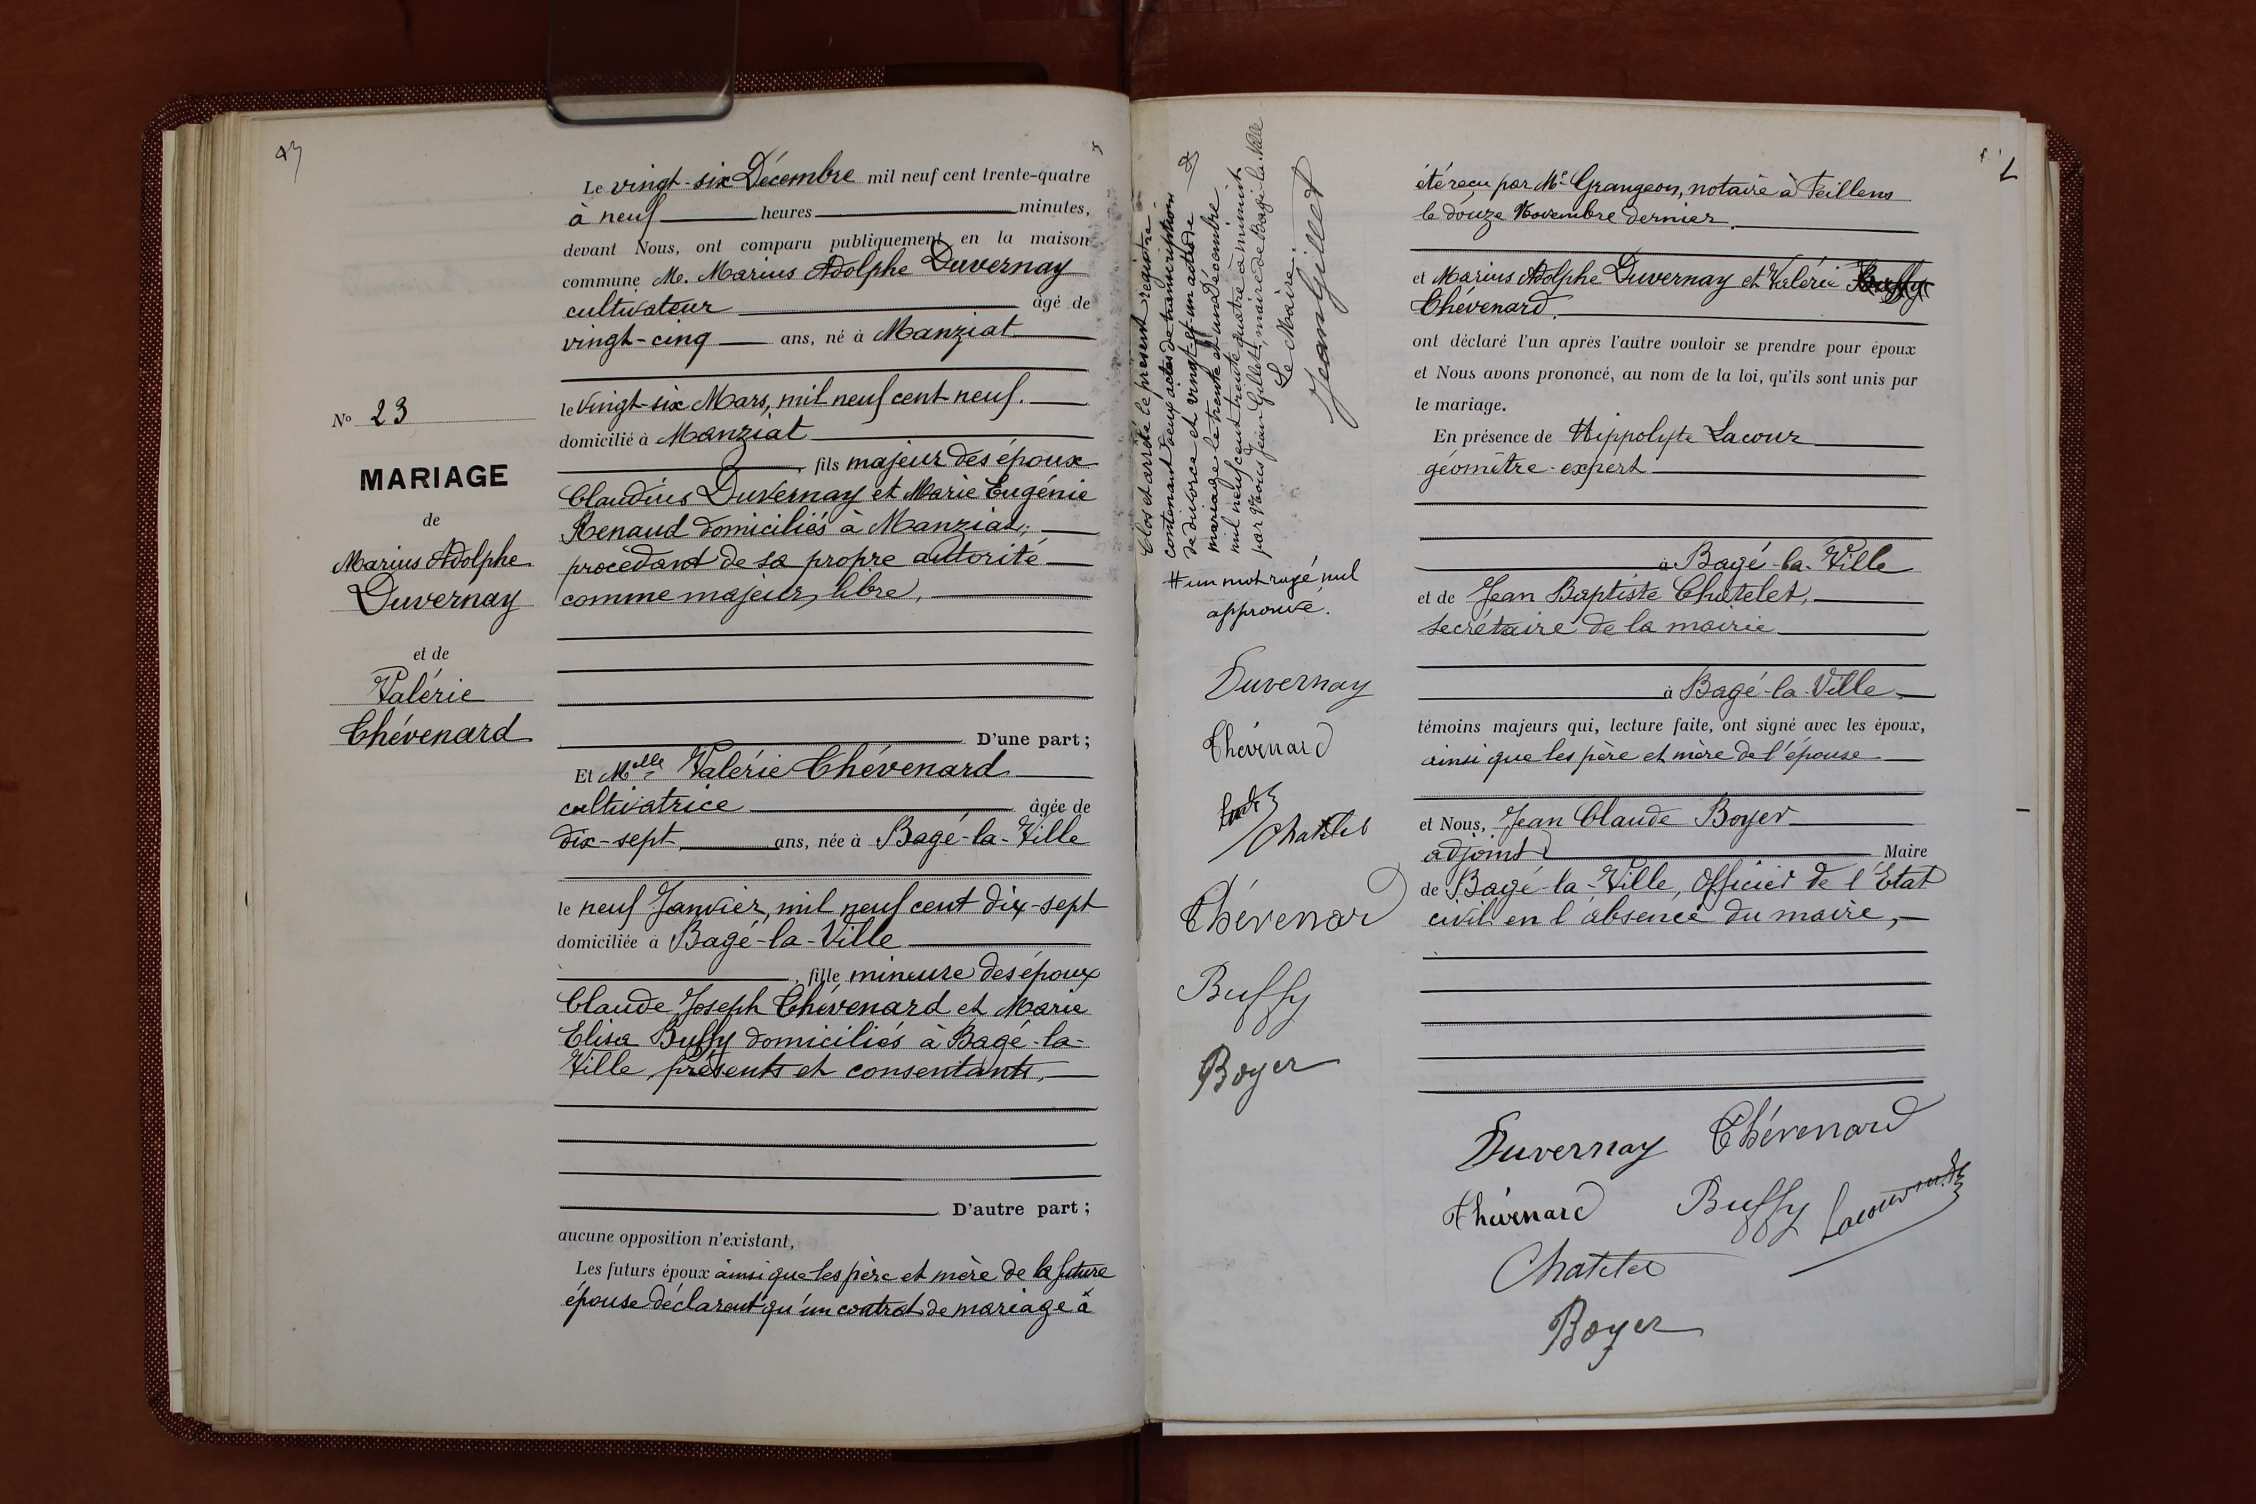 Le vingt-six Décembre mil neuf cent trente-quatre
à neuf heures minutes,
devant Nous, ont comparu publiquement en la maison
commune M. Marius Adolphe Duvernay
cultivateur âgé de
vingt-cinq ans, né à Manziat
le vingt-six Mars, mil neuf cent neuf.
domicilié à Manziat
, fils majeur des époux
Claudius Duvernay et Marie Eugénie
Renaud domiciliés à Manziat,
procèdant de sa propre autorité
comme majeur, libre,
D'une part ;
Et Melle Valérie Chévenard
cultivatrice âgée de
dix-sept ans, née à Bagé-la-Ville
le neuf Janvier, mil neuf cent dix-sept
domiciliée à Bagé-la-Ville
, fille mineure des époux
Claude Joseph Chévenard et Marie
Elisa Buffy domiciliés à Bagé-la-
Ville, présents et consentants,
D'autre part ;
aucune opposition n'existant,
Les futurs époux ainsi que les père et mère de la future
épouse déclarent qu'un contrat de mariage a
No 23
MARIAGE
de
Marius Adolphe
Duvernay
et de
Valérie
Chévenard
Clos et arrêté le présent registre
contenant deux actes de transcription
de divorce et vingt-et-un actes de
mariage le trente et un Décembre
mil neuf cent trente quatre à minuit
par Nous Jean Gillet, maire de Bagé-la-Ville
Le Maire:
Jean Gillet
# un mot rayé nul
approuvé.
Duvernay
Chévenard
Chatelet
Chévenard
Buffy
Boyer
été reçu par Me Grangeon, notaire à Feillens
le douze Novembre dernier.
et Marius Adolphe Duvernay et Valérie Buffy
Chévenard.
ont déclaré l'un après l'autre vouloir se prendre pour époux
et Nous avons prononcé, au nom de la loi, qu'ils sont unis par
le mariage.
En présence de Hippolyte Lacour
géomètre-expert
à Bagé-la-Ville
et de Jean Baptiste Chatelet,
secrétaire de la mairie
à Bagé-la-Ville
témoins majeurs qui, lecture faite, ont signé avec les époux,
ainsi que les père et mère de l'épouse
et Nous, Jean Claude Boyer
adjoint Maire
de Bagé-la-Ville, Officier de l'Etat
civil en l'absence du maire,
Duvernay Chévenard
Chévenard Buffy Lacour
Chatelet
Boyer